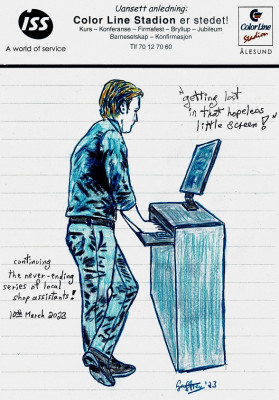 ISS
A world of service
Uansett anledning:
Color Line Stadion er stedet!
Kurs – Konferanse – Firmafest – Bryllup – Jubileum
Barneselskap – Konfirmasjon
Tlf 70 12 70 60
Color Line
Stadion
ÅLESUND
"getting lost
in that hopeless
little screen!"
continuing
the never-ending
series of local
shop assistants!
10th March 2023
'23